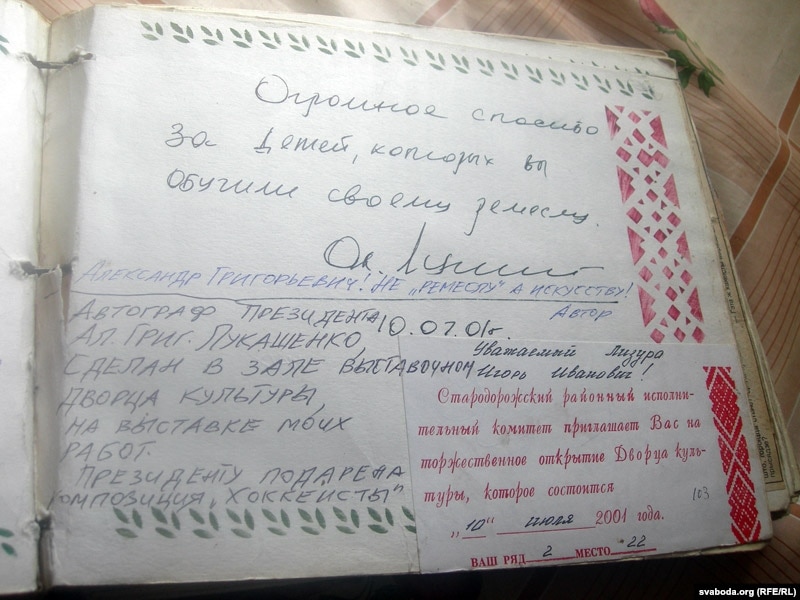 Огромное спасибо
за детей, которых вы
обучили своему ремеслу.
АЛЕКСАНДР ГРИГОРЬЕВИЧ! НЕ „РЕМЕСЛУ" А ИСКУССТВУ!
АВТОР
АВТОГРАФ ПРЕЗИДЕНТА
АЛ. ГРИГ. ЛУКАШЕНКО, 10.07.01г.
СДЕЛАН В ЗАЛЕ ВЫСТАВОЧНОМ
ДВОРЦА КУЛЬТУРЫ,
НА ВЫСТАВКЕ МОИХ
РАБОТ.
ПРЕЗИДЕНТУ ПОДАРЕНА
КОМПОЗИЦИЯ „ХОККЕИСТЫ"
Уважаемый Лизура
Игорь Иванович!
Стародорожский районный исполни-
тельный комитет приглашает Вас на
торжественное открытие Дворца куль-
туры, которое состоится
„10" июля 2001 года.
103
ВАШ РЯД 2 МЕСТО 22
svaboda.org (RFE/RL)